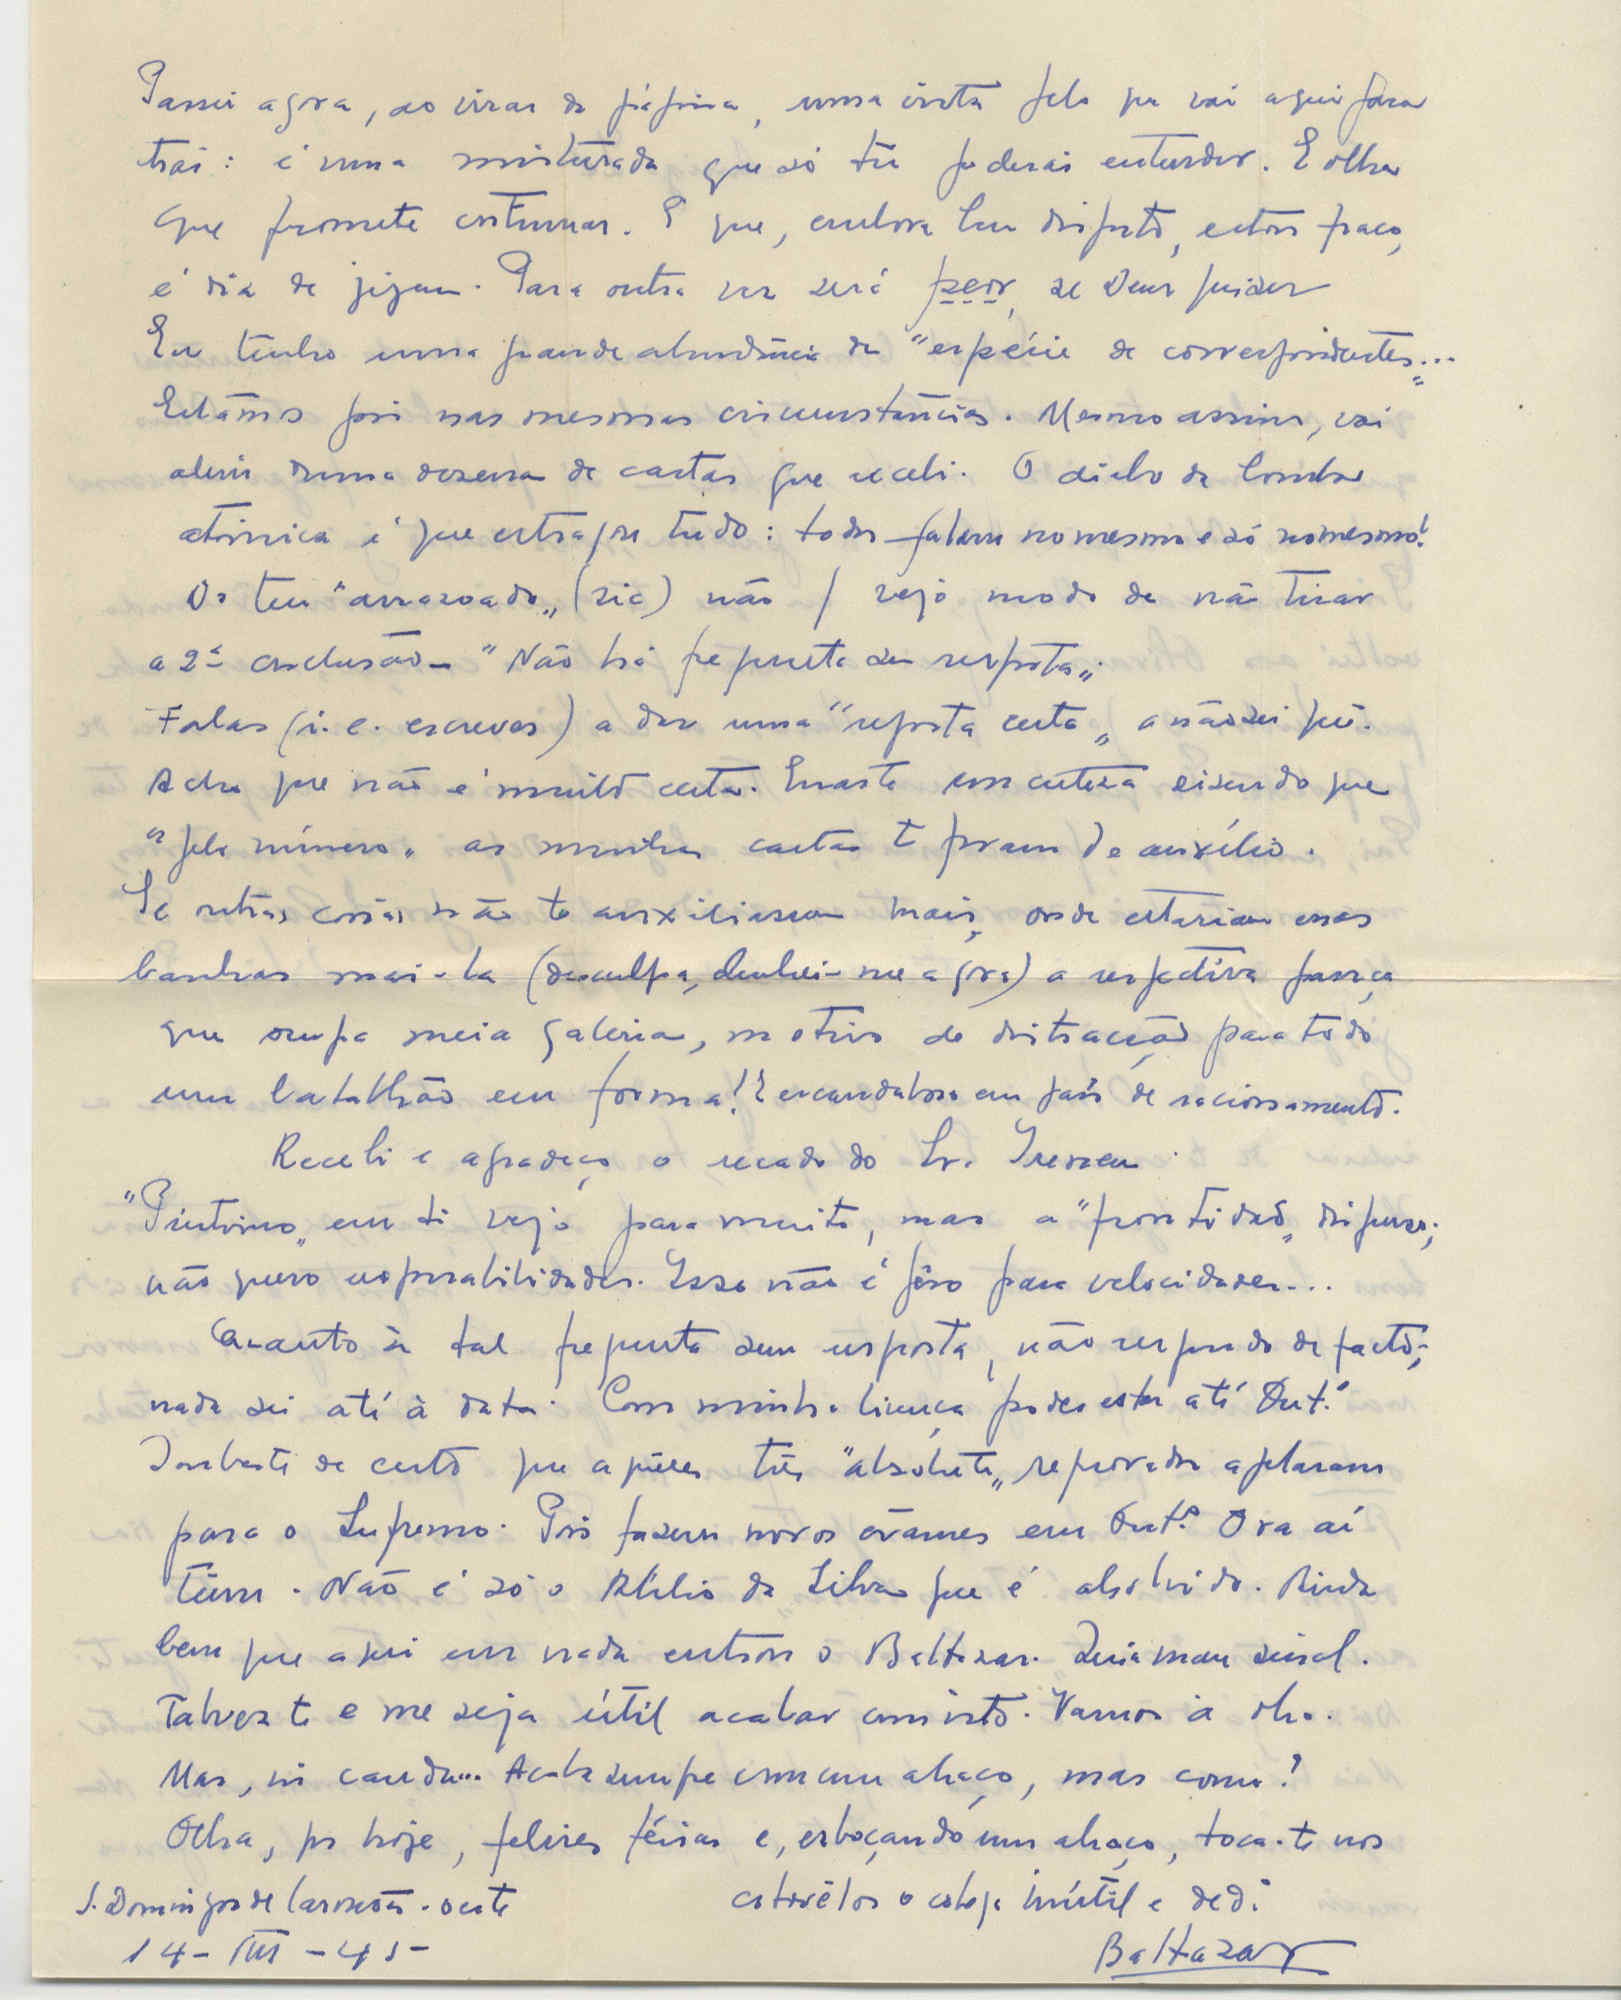 Passei agora, ao virar da página, uma vista pelo que vai aqui para
trás: é uma misturada que só tu poderás entender. E olha
que promete continuar. É que, embora bem disposto, estou fraco,
é dia de jejum. Para outra vez será peor, se Deus quizer
Eu tenho uma grande abundância de "espécie de correspondentes"...
Estámos pois nas mesmas circunstâncias. Mesmo assim, vai
além duma dezena de cartas que recebi. O diabo da bomba
atómica é que estragou tudo: todos falam no mesmo e só no mesmo!
Do teu "arrazoado" (sic) não / vejo modo de não tirar
a 2ª conclusão — "Não há pregunta sem resposta".
Falas (i. e. escreves) a dar uma "resposta certa" a não sei quê.
Acho que não é muito certa. Erraste com certeza dizendo que
"pelo número" as minhas cartas te foram de auxílio.
Se outras coisas não te auxiliassem mais, onde estariam essas
banhas mai-la (desculpa, lembrei-me agora) a respectiva pança
que ocupa meia galeria, motivo de distracção para todo
um batalhão em forma! É escandaloso em país de racionamento.
Recebi e agradeço o recado do Sr.
"Pintrino" em ti vejo para muito, mas a "prontidão" dispenso;
não quero responsabilidades. Isso não é fôro para velocidades...
Quanto à tal pregunta sem resposta, não respondo de facto;
nada sei até à data. Com minha licença podes estar até Out.º
Soubeste de certo que aqueles três "absolute" reprovados apelaram
para o Supremo. Pois fazem novos exames em Out.º Ora aí
têem. Não é só o Abílio da Silva que é absolvido. Ainda
bem que aqui em nada entrou o Baltazar. Seria mau sinal.
Talvez te e me seja útil acabar com isto. Vamos a
Mas, in cauda... Acaba sempre com um abraço, mas como?
Olha, por hoje, felizes férias e, esboçando um abraço, toca-te nos
cotovêlos o colega inútil e ded.º
S. Domingos de Carmões - oeste
14 - VIII - 45 -
Baltazar